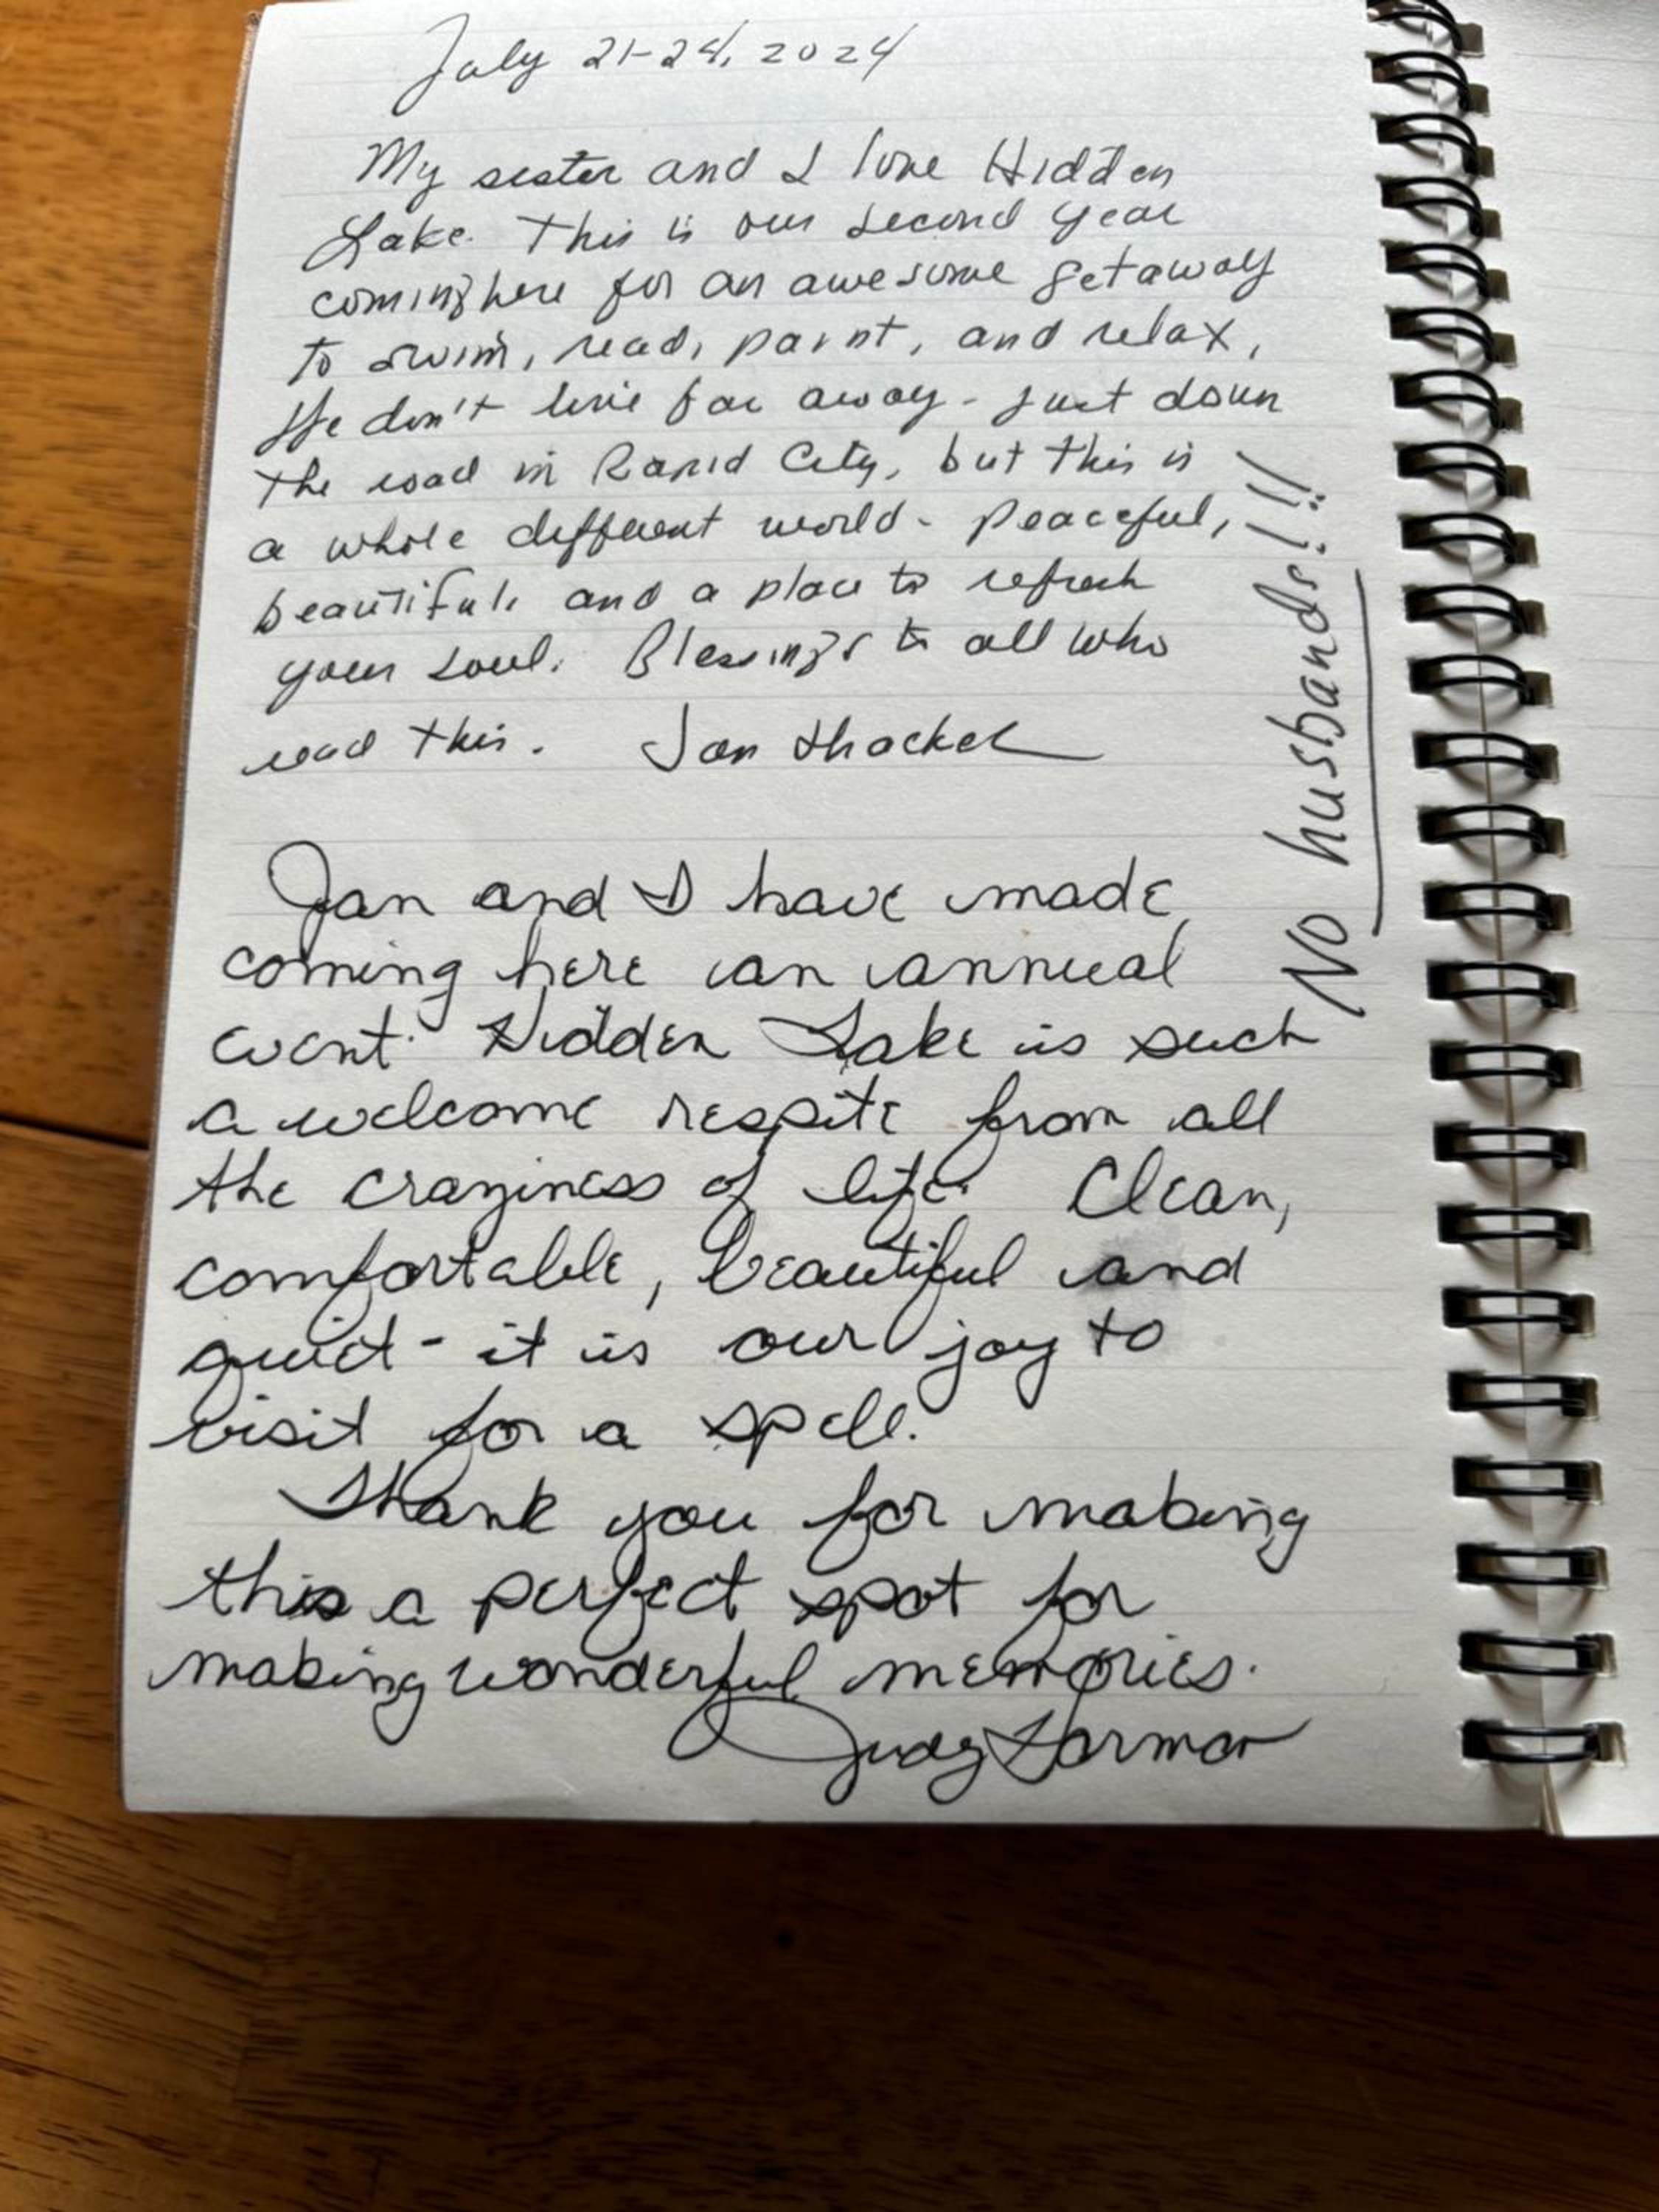 July 21-24, 2024
My sister and I love Hidden
Lake. This is our second year
coming here for an awesome getaway
to swim, read, paint, and relax.
We don't live far away - just down
the road in Rapid City, but this is
a whole different world - peaceful,
beautiful, and a place to refresh
your soul. Blessings to all who
read this. Jan
No husbands!!!
Jan and I have made
coming here an annual
event. Hidden Lake is such
a welcome respite from all
the craziness of life. Clean,
comfortable, beautiful and
quiet - it is our joy to
visit for a spell.
Thank you for making
this a perfect spot for
making wonderful memories.
Judy